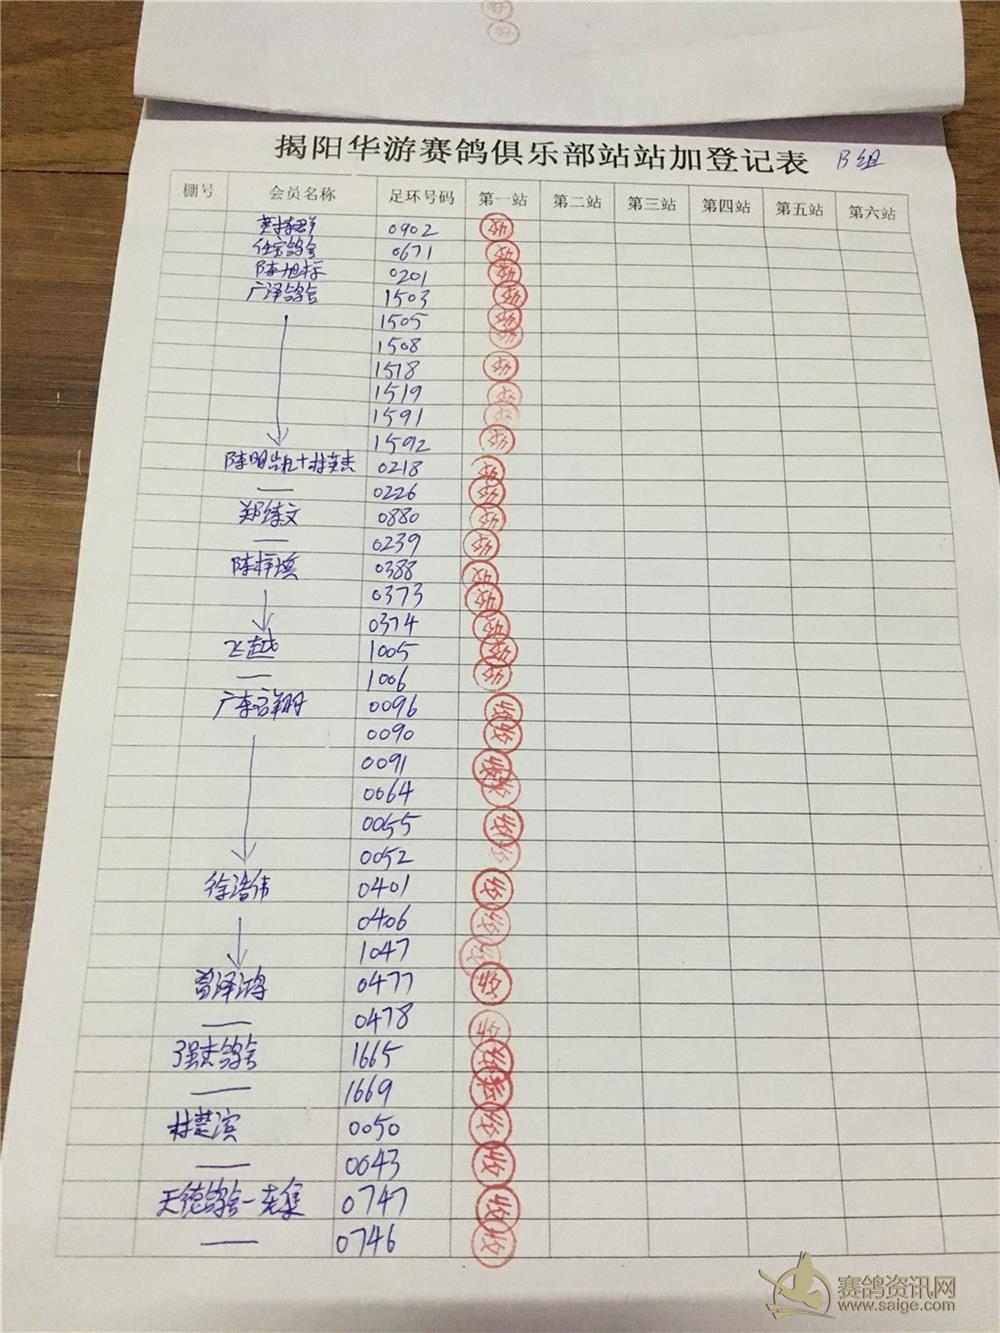 揭阳华游赛鸽俱乐部站站加登记表 B组
棚号 会员名称 足环号码 第一站 第二站 第三站 第四站 第五站 第六站
0902 收
鸽舍 0671 收
陈旭标 0201 收
广泽鸽舍 1503 收
1505 收
1508 收
1518 收
1519 收
1591 收
1592 收
陈明凯+林英杰 0218 收
0226 收
郑绵文 0880 收
0239 收
陈梓滨 0388 收
0373 收
0374 收
飞越 1005 收
1006 收
广东高翔 0096 收
0090 收
0091 收
0064 收
0055 收
0052 收
徐浩伟 0401 收
0406 收
1047 收
泽鸿 0477 收
0478 收
强杰鸽舍 1665 收
1669 收
林楚滨 0050 收
0043 收
天德鸽舍 0747 收
0746 收
赛鸽资讯网
www.saige.com